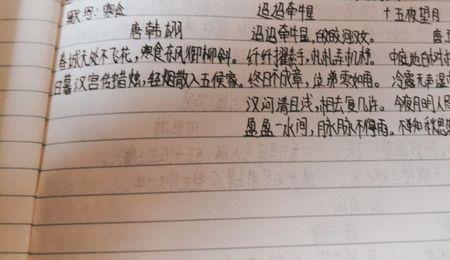 默写:寒食
唐韩翃
春城无处不飞花,寒食东风御柳斜。
日暮汉宫传蜡烛,轻烟散入五侯家。
迢迢牵牛星
迢迢牵牛星,皎皎河汉女。
纤纤擢素手,札札弄机杼。
终日不成章,泣涕零如雨。
汉河清且浅,相去复几许。
盈盈一水间,脉脉不得雨。
十五夜望月
唐王
中庭地白树
冷露无声湿
今夜月明人
不知秋思